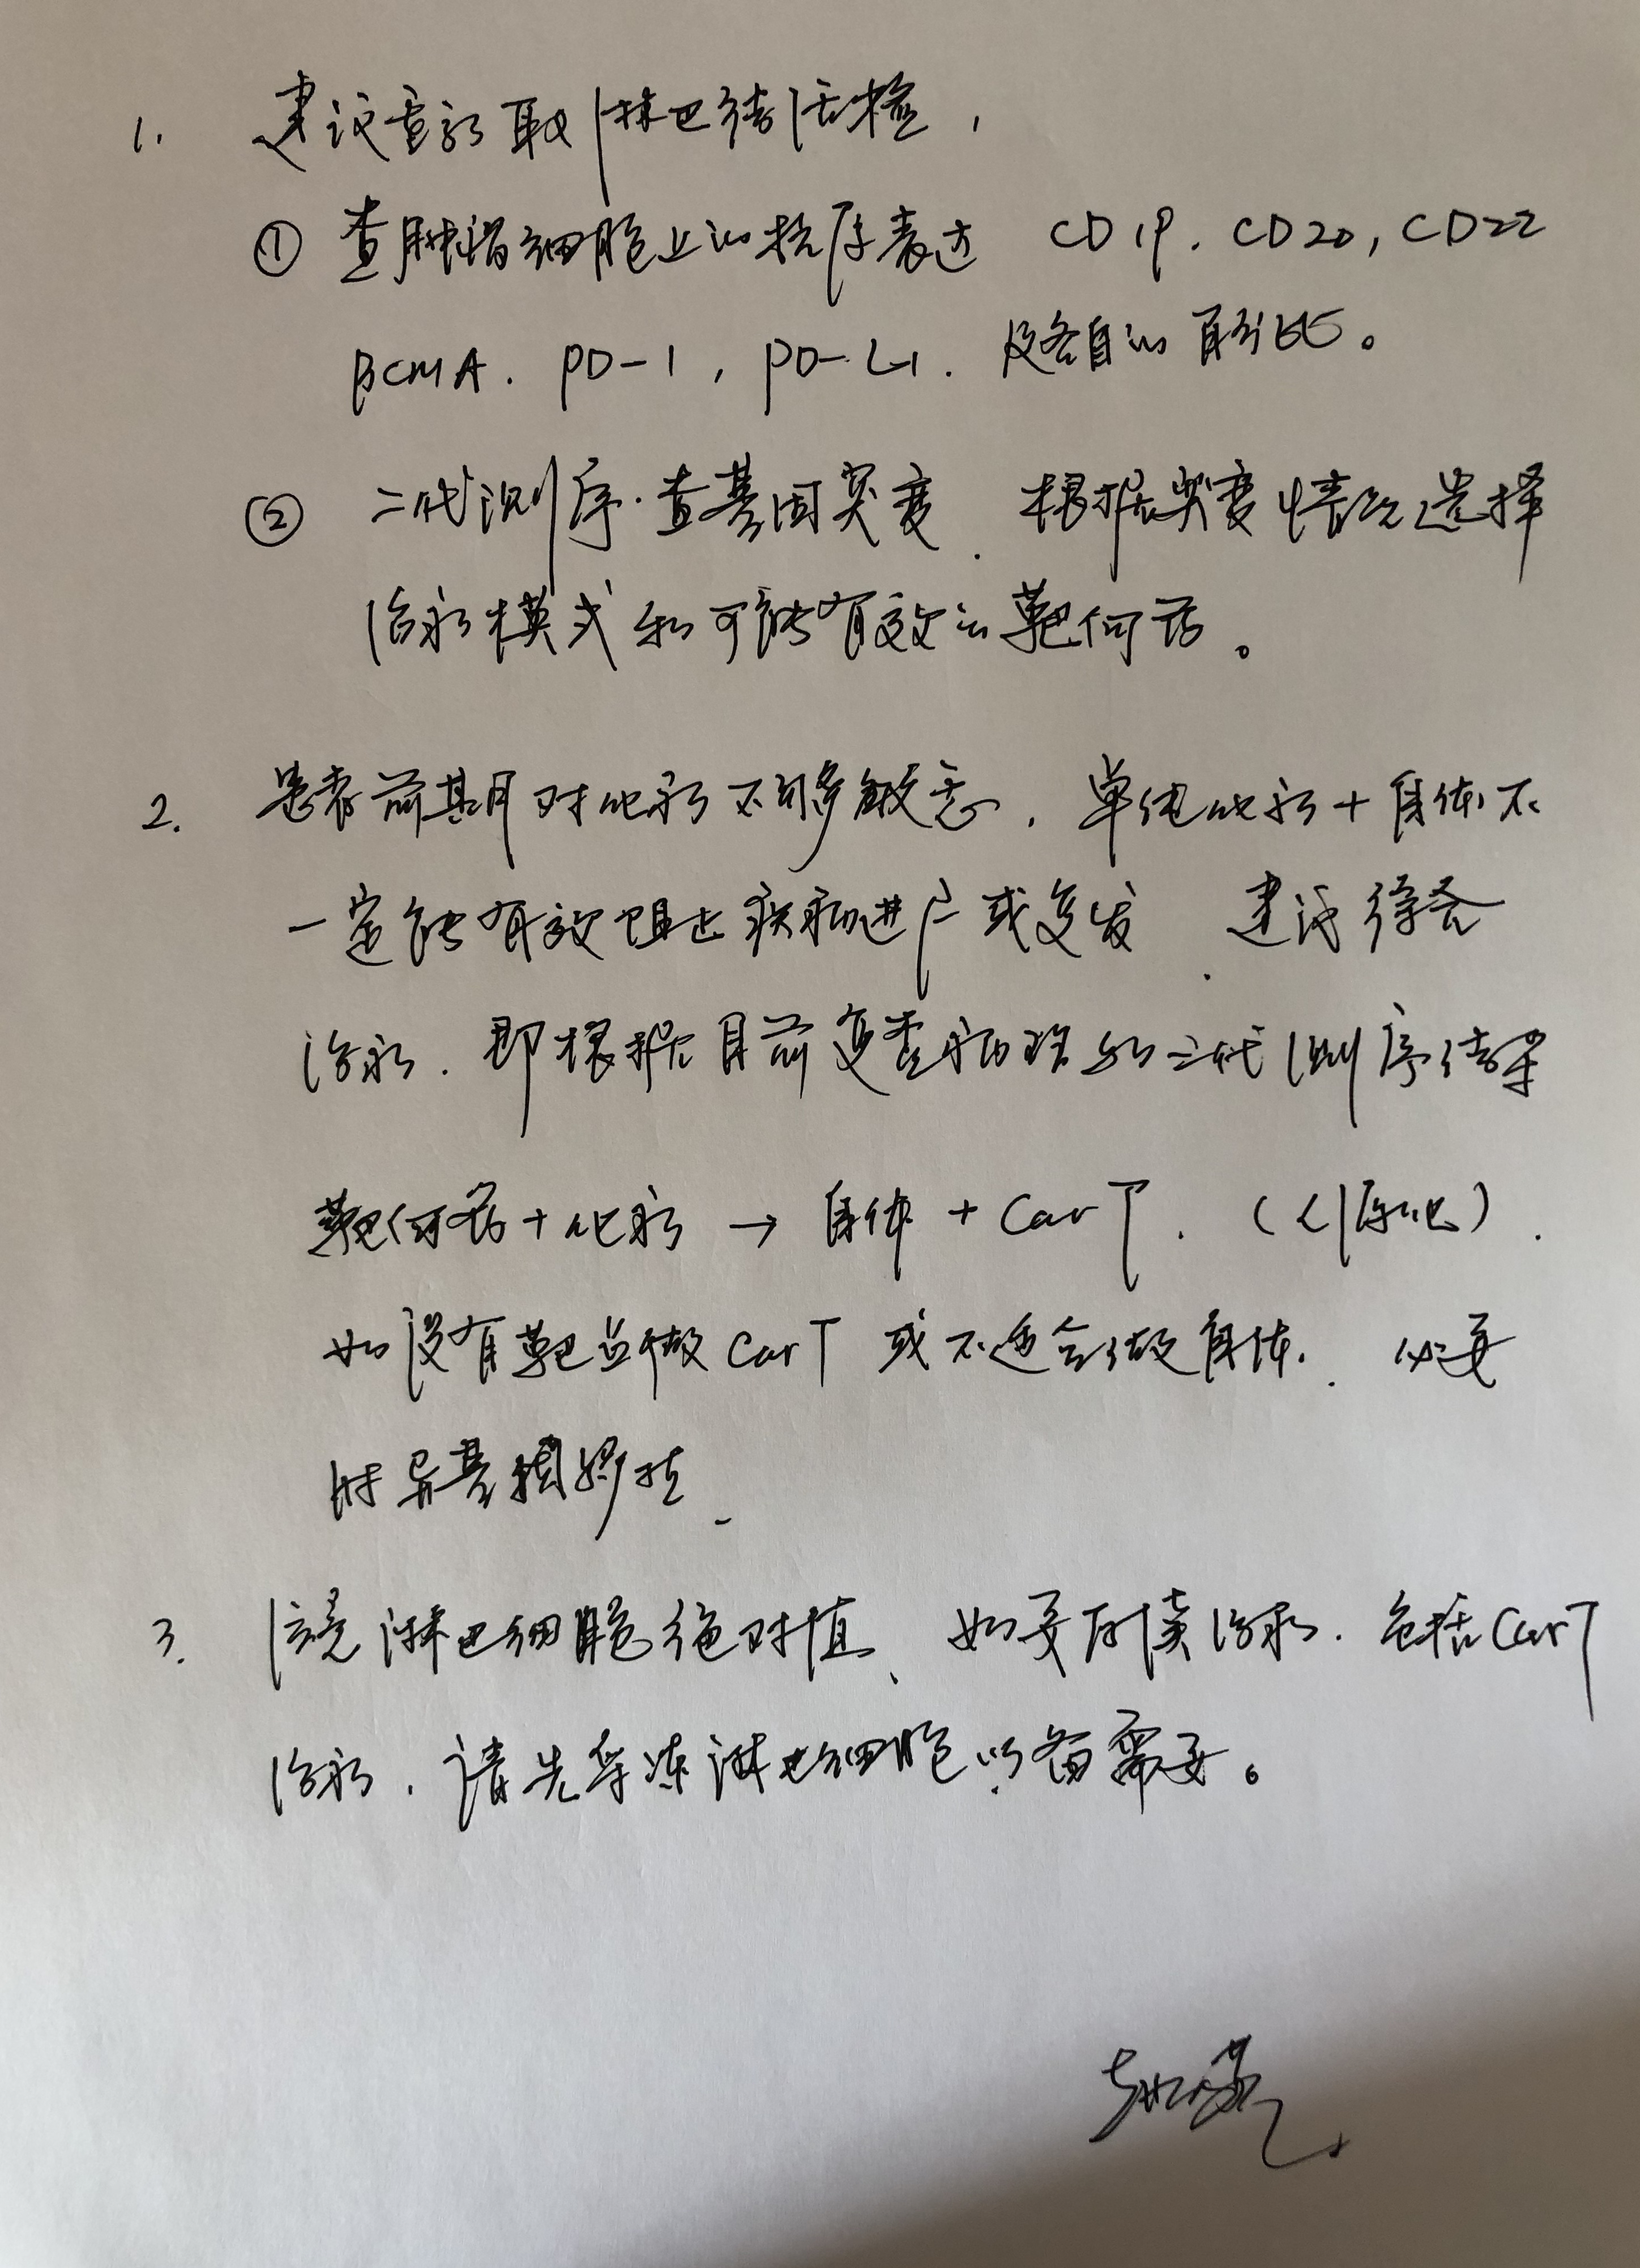 1. 建议重新取淋巴结活检,
① 查肿瘤细胞上的抗原表达 CD19. CD20, CD22
BCMA. PD-1, PD-L1. 及各自的百分比。
② 二代测序.查基因突变. 根据突变情况选择
治疗模式和可能有效的靶向药。
2. 患者前期对化疗不够敏感. 单纯化疗+自体不
一定能有效阻止疾病进产或复发. 建议综合
治疗. 即根据目前复查病理和二代测序结果
靶向药+化疗 → 自体 + CarT. ( ).
如没有靶点做CarT 或不适合做自体. 必要
时异基因移植.
3. 注意淋巴细胞绝对值、如要后续治疗. 包括CarT
治疗. 请先存冻淋巴细胞以备需要。